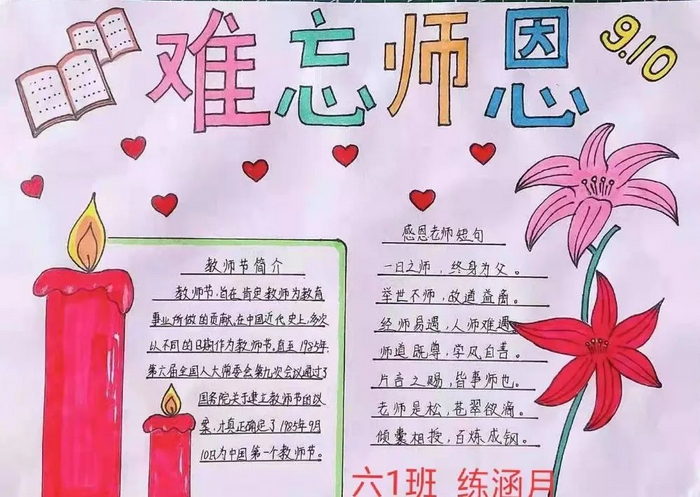 难忘师恩
9.10
教师节简介
教师节,旨在肯定教师为教育
事业所做的贡献,在中国近代史上,多次
以不同的日期作为教师节,直至1985年,
第六届全国人大常委会第九次会议通过了
国务院关于建立教师节的议
案,才真正确定了1985年9月
10日为中国第一个教师节。
感恩老师短句
一日之师,终身为父。
举世不师,故道益离。
经师易遇,人师难遇
师道既尊,学风自善。
片言之赐,皆事师也。
老师是松,苍翠欲滴。
倾囊相授,百炼成钢。
六1班 练涵月